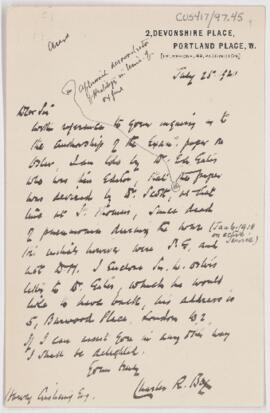 CUS417/97.45
2, DEVONSHIRE PLACE,
PORTLAND PLACE, W.
July 25th 1921
Dear Sir
With reference to your inquiry as to
the authorship of the paper on
Osler, I am told by Dr. Eales
who was his Editor that the paper
was devised by Dr. Scott, at that
time at St. Thomas', since dead
of pneumonia during the war (Jan 6, 1918
on active
service)
His initials however were S.G. and
not D.M. I enclose Sir W. Osler's
letter to Dr. Eales, which he would
like to have back, his address is
5, Burwood Place. London W2
If I can assist you in any other way
I shall be delighted.
Yours truly
Charles R. Box
Harvey Cushing Esq.